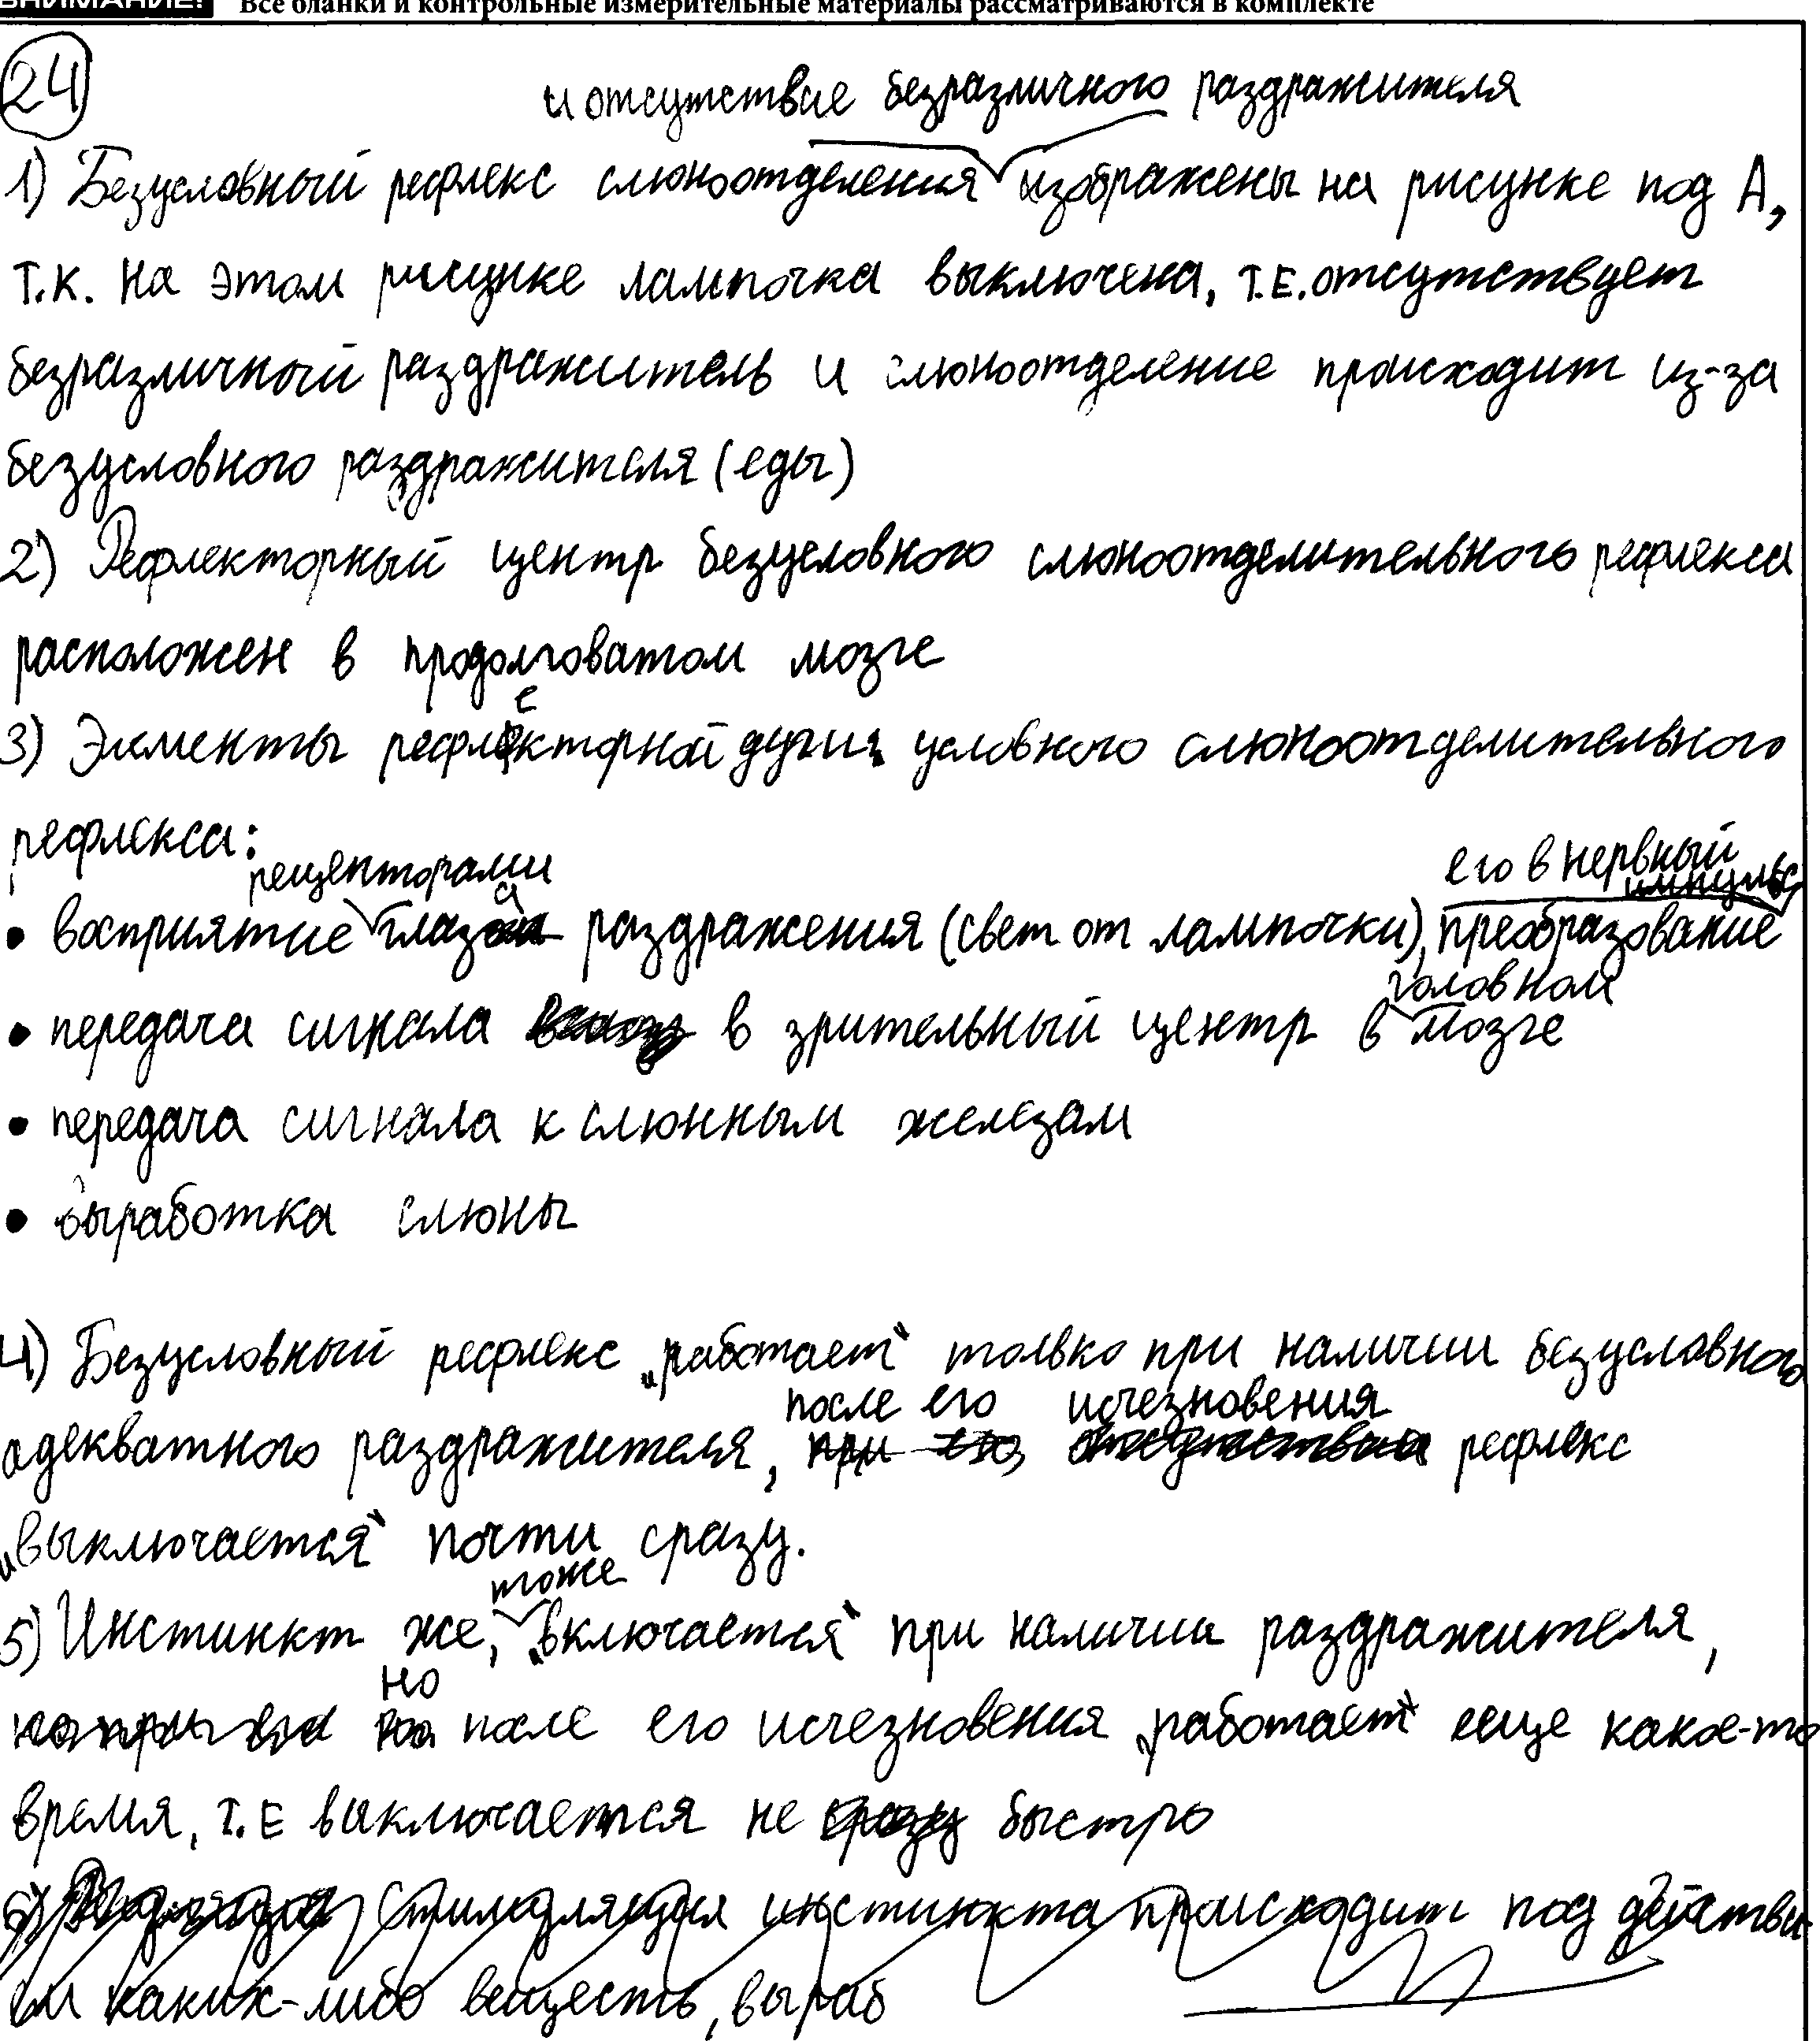 ВНИМАНИЕ! Все бланки и контрольные измерительные материалы рассматриваются в комплекте
24
и отсутствие безразличного раздражителя
1) Безусловный рефлекс слюноотделения изображены на рисунке под А,
т.к. на этом рисунке лампочка выключена, т.е. отсутствует
безразличный раздражитель и слюноотделение происходит из-за
безусловного раздражителя (еды)
2) Рефлекторный центр безусловного слюноотделительного рефлекса
расположен в продолговатом мозге
3) Элементы рефлекторной дуги условного слюноотделительного
рефлекса:
рецепторами его в нервный импульс
• восприятие глаза раздражения (свет от лампочки), преобразование
головном
• передача сигнала в зрительный центр в мозге
• передача сигнала к слюнным железам
• выработка слюны
4) Безусловный рефлекс „работает“ только при наличии безусловного
после его исчезновения
адекватного раздражителя, при его рефлекс
„выключается“ почти сразу.
тоже
5) Инстинкт же, „включается“ при наличии раздражителя,
но
после его исчезновения „работает“ еще какое-то
время, т.е выключается не сразу быстро
6) Стимуляция инстинкта происходит под действи
ем каких-либо веществ, выраб